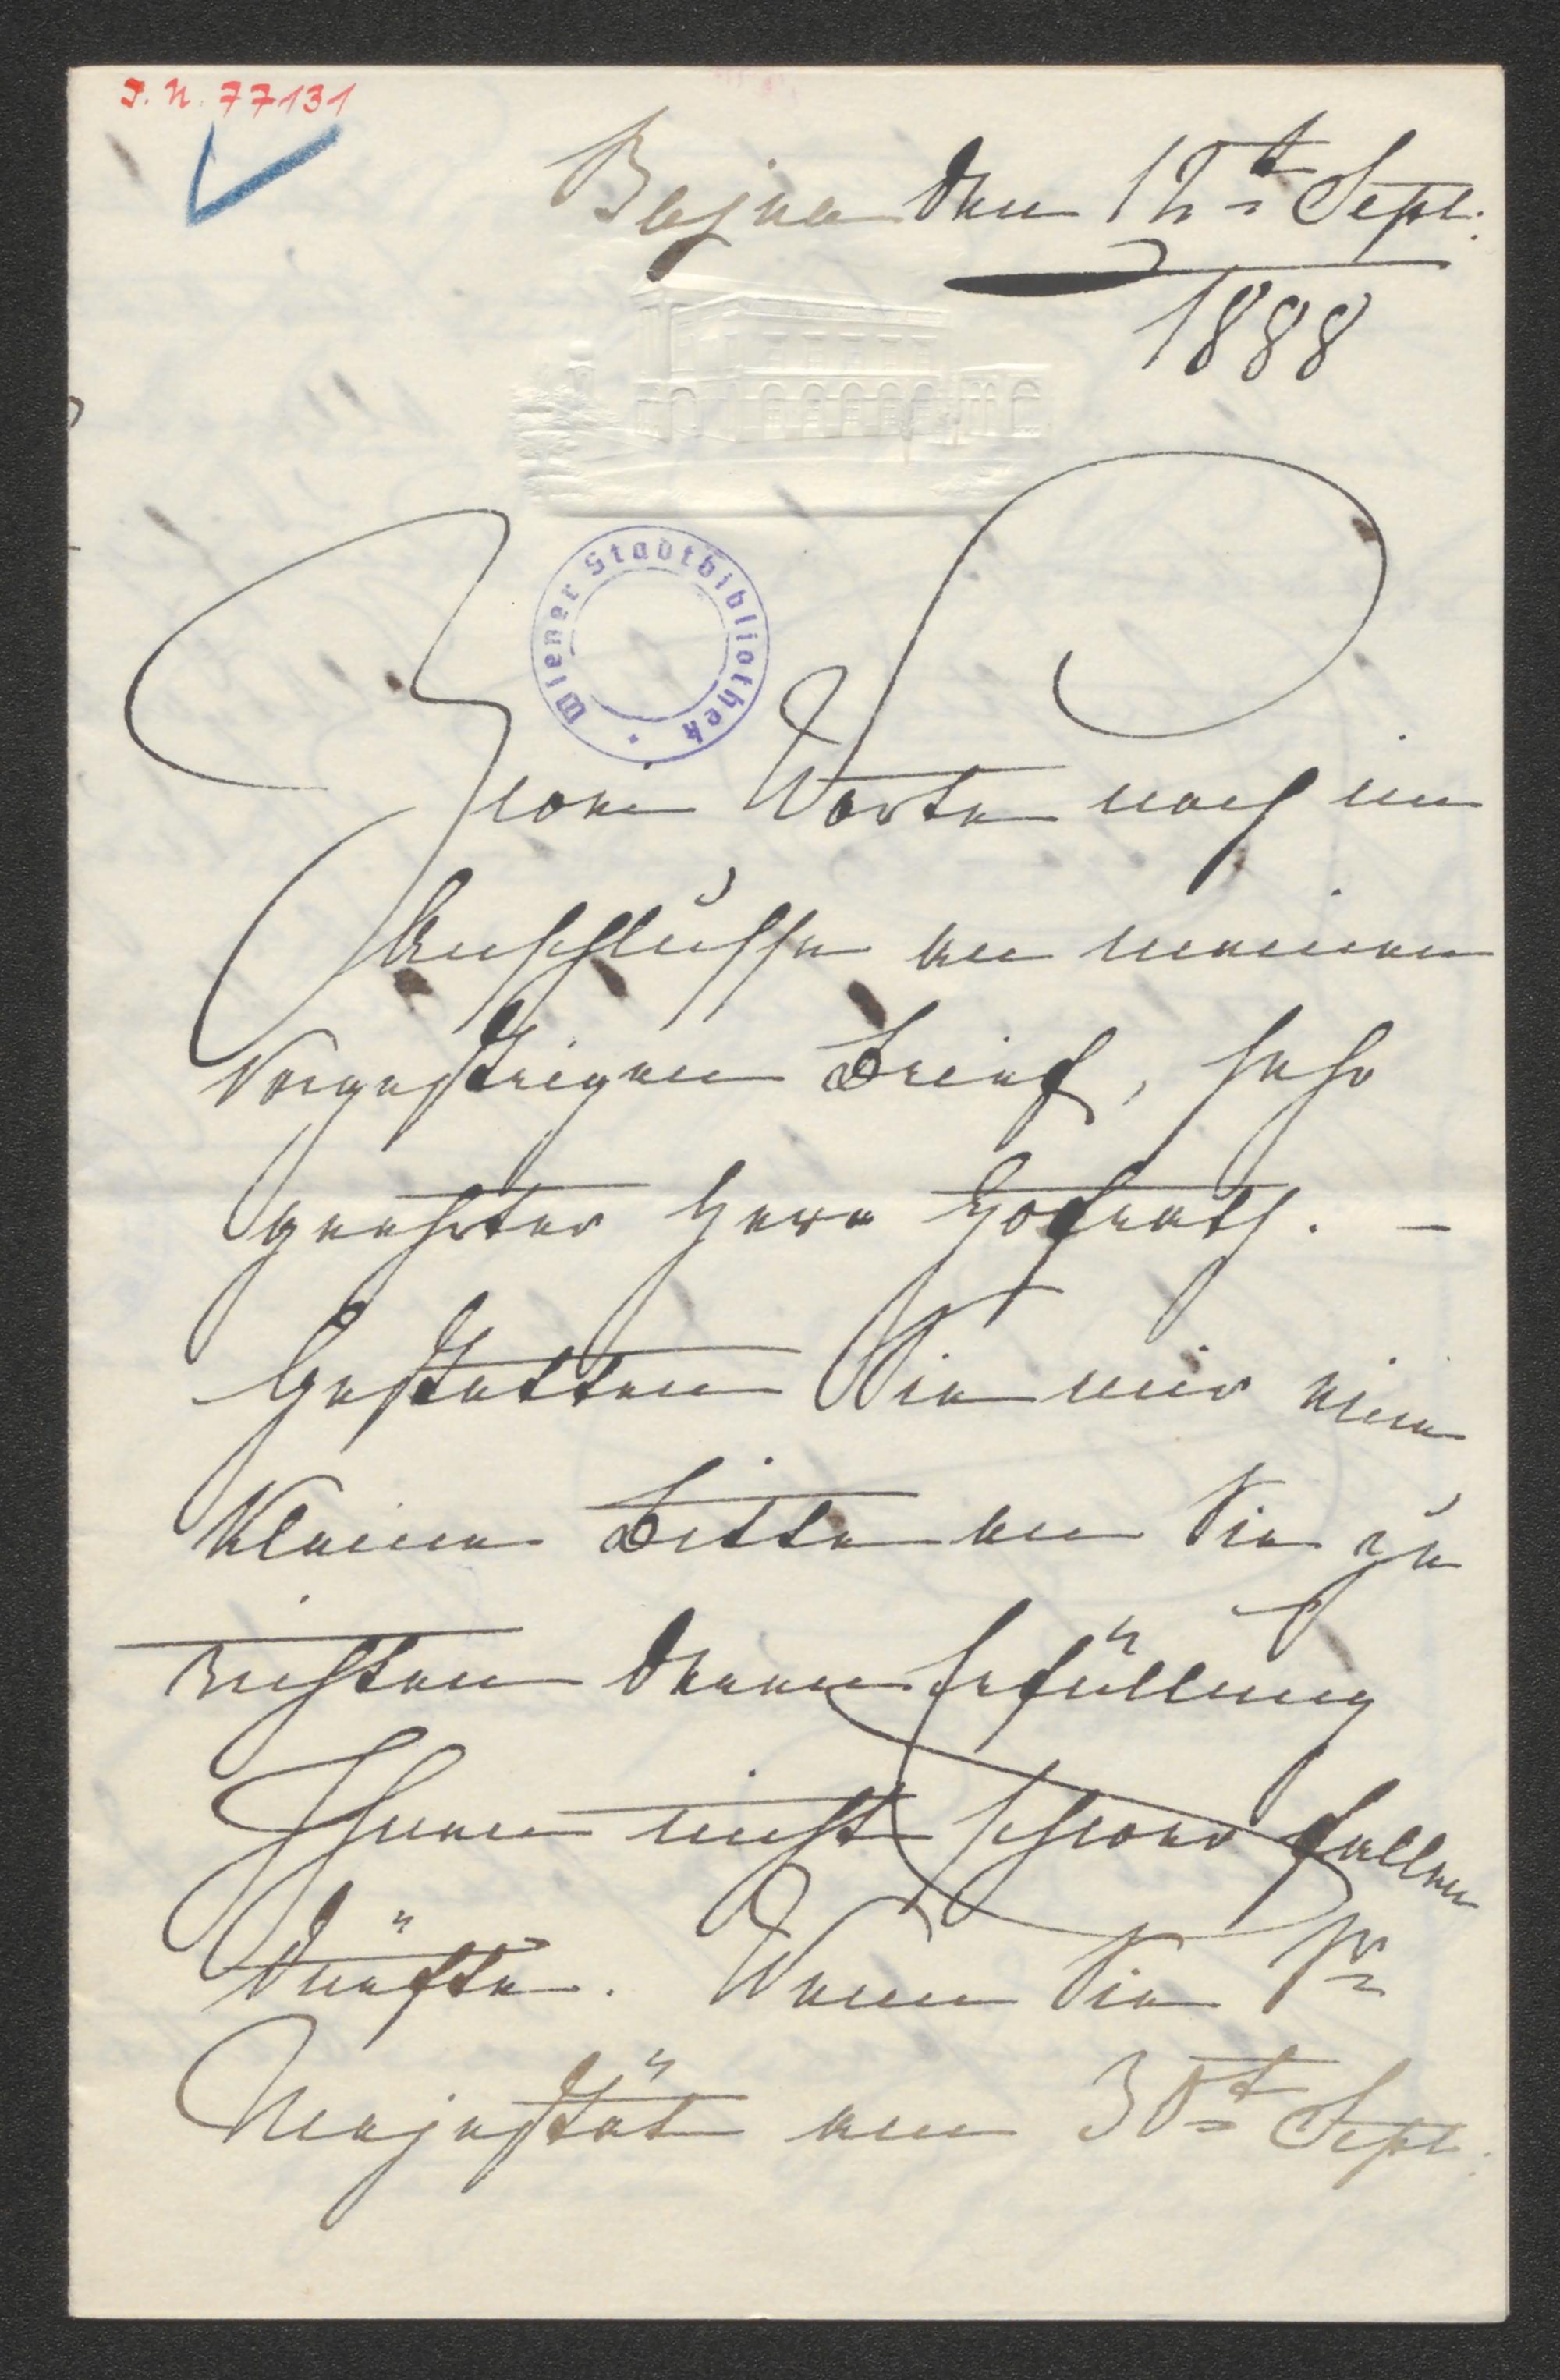 I. N. 77131
Bajna den 12t Sept.
1888
Wiener Stadtbibliothek
Zwei Worte noch im
Anschlusse an meinen
vorgestrigen Brief, sehr
geehrter Herr Hofrath. –
Gestatten Sie mir eine
kleine Bitte an Sie zu
richten deren Erfüllung
Ihnen nicht schwer fallen
dürfte. Wenn Sie Sr
Majestät am 30t Sept.